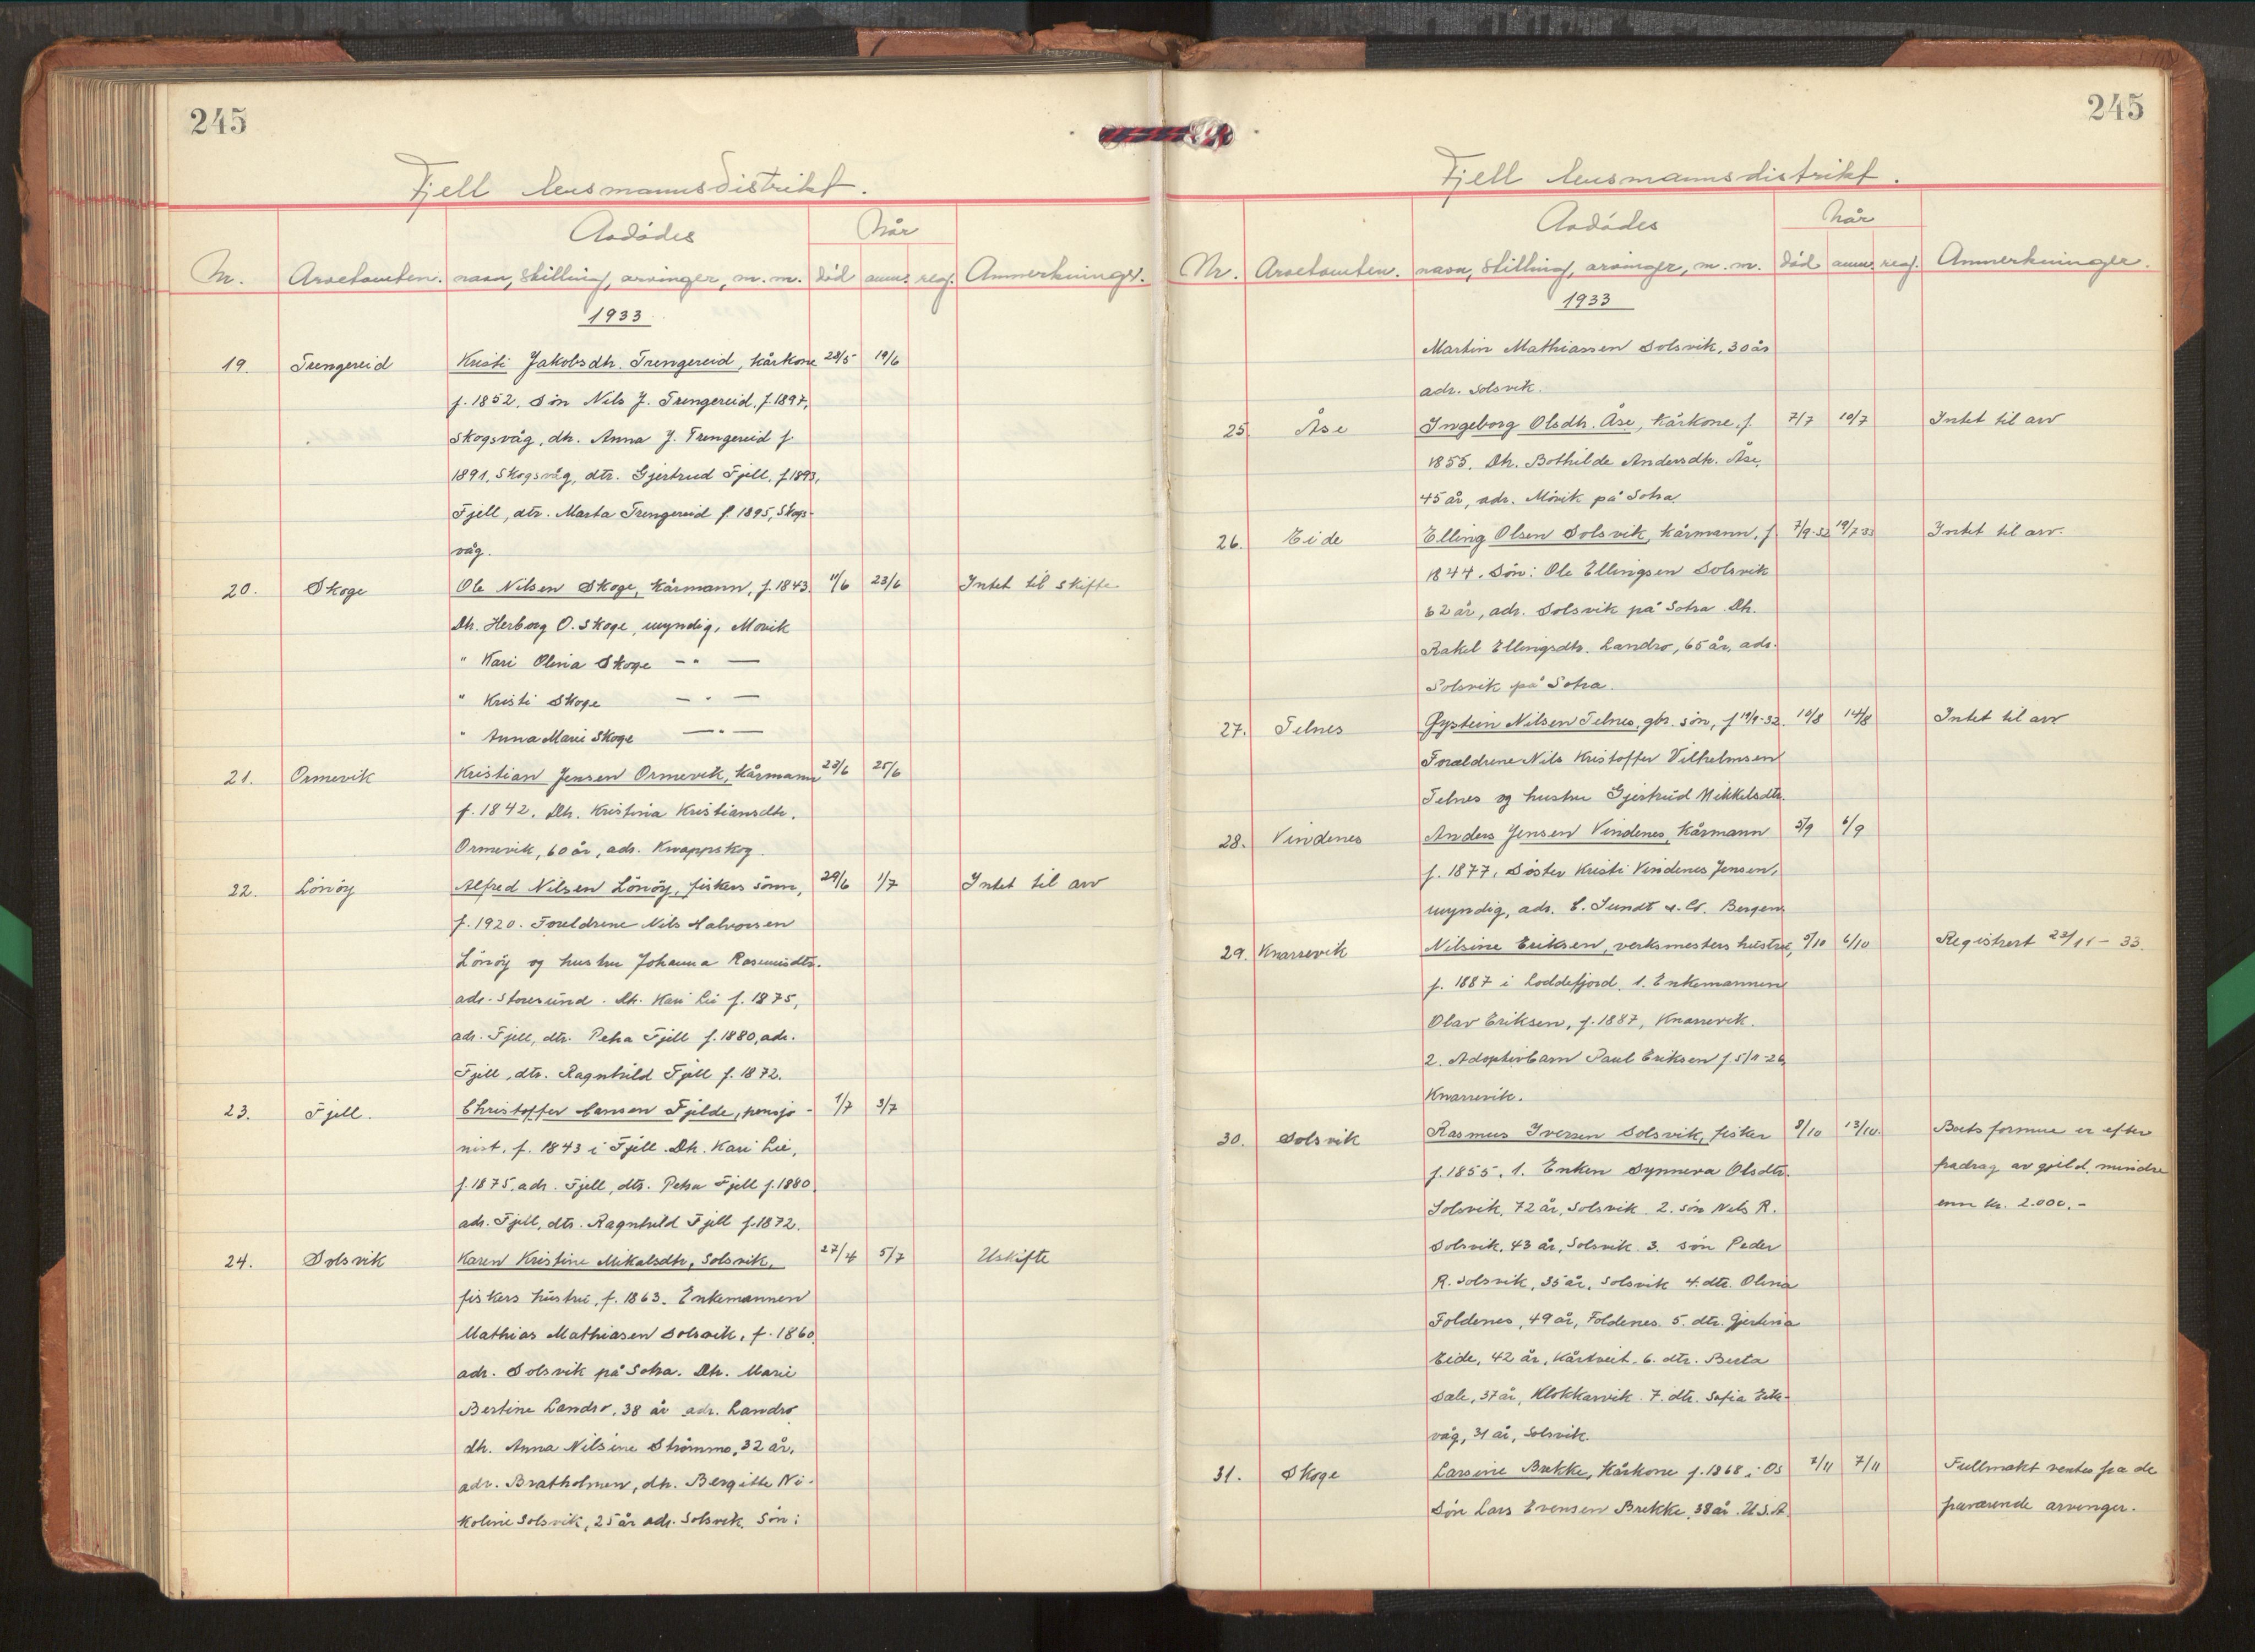 245
Fjell lensmannsdistrikt.
Avdødes
Når
Nr. Arvetomten. navn, stilling, arvinger, m. m. död anm. reg. Anmerkninger.
1933
19. Trengereid Kristi Jakobsdtr. Trengereid, kårkone 28/5 19/6
f. 1852. Sön Nils J. Trengereid, f. 1897,
Skogsvåg, dtr. Anna J. Trengereid f.
1891, Skogsvåg, dtr. Gjertrud Fjell, f. 1893,
Fjell, dtr. Marta Trengereid f. 1895, Skogs-
våg.
20. Skoge Ole Nilsen Skoge, kårmann, f. 1843. 11/6 23/6 Intet til skifte
Dtr. Herborg O. Skoge, myndig, Movik
" Kari Olina Skoge - " —
" Kristi Skoge — " —
" Anna Marie Skoge — " —
21. Ormevik Kristian Jensen Ormevik, kårmann 23/6 25/6
f. 1842. Dtr. Kristina Kristiansdtr.
Ormevik, 60 år, adr. Knappskog
22. Lönöy Alfred Nilsen Lönöy, fiskers sönn, 29/6 1/7 Intet til arv
f. 1920. Foreldrene Nils Halvorsen
Lönöy og hustru Johanna Rasmusdtr.
adr. Storesund. Dtr. Kari Lie f. 1875,
adr. Fjell, dtr. Petra Fjell f. 1880, adr.
Fjell, dtr. Ragnhild Fjell f. 1872.
23. Fjell. Christoffer Hansen Fjelde, pensjo- 1/7 3/7
nist, f. 1843 i Fjell. Dtr. Kari Lie,
f. 1875, adr. Fjell, dtr. Petra Fjell f. 1880
adr. Fjell, dtr. Ragnhild Fjell f. 1872.
24. Solsvik Karen Kristine Mikalsdtr, Solsvik, 27/4 5/7 Uskifte
fiskers hustru, f. 1863. Enkemannen
Mathias Mathiasen Solsvik, f. 1860
adr. Solsvik på Sotra. Dtr. Marie
Bertine Landro, 38 år adr. Landro
dtr. Anna Nilsine Strömme, 32 år,
adr. Bratholmen, dtr. Bergitte Ni-
koline Solsvik, 25 år adr. Solsvik. Sön:
245
Fjell lensmannsdistrikt.
Avdødes
Når
Nr. Arvetomten. navn, stilling, arvinger, m. m. död anm. reg. Anmerkninger.
1933
Martin Mathiassen Solsvik, 30 år
adr. Solsvik.
25. Åse Ingeborg Olsdtr. Åse, kårkone, f. 7/7 10/7 Intet til arv
1855. Dtr. Bothilde Andersdtr. Åse,
45 år, adr. Mövik på Sotra
26. Eide Elling Olsen Solsvik, kårmann, f. 7/9-32 19/7 33 Intet til arv.
1844. Sön: Ole Ellingsen Solsvik
62 år, adr. Solsvik på Sotra. Dtr.
Rakel Ellingsdtr. Landro, 65 år, adr.
Solsvik på Sotra.
27. Telnes Øystein Nilsen Telnes, gbr. sön, f 19/9-32. 10/8 14/8 Intet til arv
Foreldrene Nils Kristoffer Vilhelmsen
Telnes og hustru Gjertrud Mikkelsdtr.
28. Vindenes Anders Jensen Vindenes, kårmann 5/9 6/9
f. 1877, Söster Kristi Vindenes Jensen,
myndig, adr. C. Sundt & Co. Bergen
29. Knarrevik Nilsine Eriksen, verksmesters hustru, 5/10 6/10 Registrert 23/11 - 33.
f. 1887 i Loddefjord. 1. Enkemannen
Olav Eriksen, f. 1887, Knarrevik.
2. Adoptivbarn Paul Eriksen f. 5/1-26
Knarrevik.
30. Solsvik Rasmus Iversen Solsvik, fisker 8/10 13/10. Boets formue er efter
f. 1855. 1. Enken Synneva Olsdtr. fradrag av gjeld mindre
Solsvik, 72 år, Solsvik. 2. sön Nils R. enn kr. 2.000,-
Solsvik, 43 år, Solsvik. 3. sön Peder
R. Solsvik, 35 år, Solsvik 4. dtr. Olina
Foldenes, 49 år, Foldenes. 5. dtr. Gjertina
Eide, 42 år, Kårtveit. 6. dtr. Berta
Dale, 37 år, Klokkarvik. 7. dtr. Sofia Eike-
våg, 31 år, Solsvik.
31. Skoge Larsine Brekke, kårkone f. 1868 i Os 2/11 7/11 Fullmakt ventes fra de
Sön Lars Evensen Brekke, 38 år. U.S.A. fraværende arvinger.